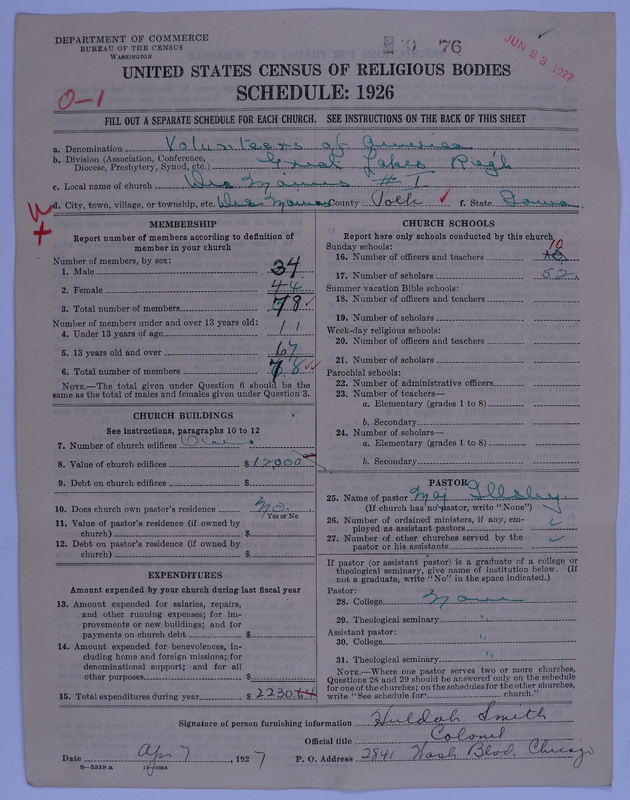 DEPARTMENT OF COMMERCE
BUREAU OF THE CENSUS
WASHINGTON
76
JUN 23 1927
UNITED STATES CENSUS OF RELIGIOUS BODIES
SCHEDULE: 1926
0-1
FILL OUT A SEPARATE SCHEDULE FOR EACH CHURCH. SEE INSTRUCTIONS ON THE BACK OF THIS SHEET
a. Denomination Volunteers of America
b. Division (Association, Conference, Diocese, Presbytery, Synod, etc.) Great Lakes Reg'n
c. Local name of church Des Moines # 1
d. City, town, village, or township, etc. Des Moines County Polk f. State Iowa
MEMBERSHIP
Report number of members according to definition of member in your church
Number of members, by sex:
1. Male 34
2. Female 44
3. Total number of members 78
Number of members under and over 13 years old:
4. Under 13 years of age 11
5. 13 years old and over 67
6. Total number of members 78
NOTE.—The total given under Question 6 should be the same as the total of males and females given under Question 3.
CHURCH BUILDINGS
See instructions, paragraphs 10 to 12
7. Number of church edifices
8. Value of church edifices $ 12000
9. Debt on church edifices $
10. Does church own pastor's residence No
Yes or No
11. Value of pastor's residence (if owned by church) $
12. Debt on pastor's residence (if owned by church) $
EXPENDITURES
Amount expended by your church during last fiscal year
13. Amount expended for salaries, repairs, and other running expenses; for improvements or new buildings; and for payments on church debt $
14. Amount expended for benevolences, including home and foreign missions; for denominational support; and for all other purposes $
15. Total expenditures during year $ 2230 64
CHURCH SCHOOLS
Report here only schools conducted by this church
Sunday schools:
16. Number of officers and teachers 10
17. Number of scholars 52
Summer vacation Bible schools:
18. Number of officers and teachers
19. Number of scholars
Week-day religious schools:
20. Number of officers and teachers
21. Number of scholars
Parochial schools:
22. Number of administrative officers
23. Number of teachers—
a. Elementary (grades 1 to 8)
b. Secondary
24. Number of scholars—
a. Elementary (grades 1 to 8)
b. Secondary
PASTOR
25. Name of pastor Maj Illsley
(If church has no pastor, write "None")
26. Number of ordained ministers, if any, employed as assistant pastors
27. Number of other churches served by the pastor or his assistants
If pastor (or assistant pastor) is a graduate of a college or theological seminary, give name of institution below. (If not a graduate, write "No" in the space indicated.)
Pastor:
28. College None
29. Theological seminary "
Assistant pastor:
30. College "
31. Theological seminary "
NOTE.—Where one pastor serves two or more churches, Questions 28 and 29 should be answered only on the schedule for one of the churches; on the schedules for the other churches, write "See schedule for church."
Signature of person furnishing information Huldah Smith
Official title Colonel
Date Apr 7, 1927 P. O. Address 2841 Wash Blvd. Chicago
8—5518 a